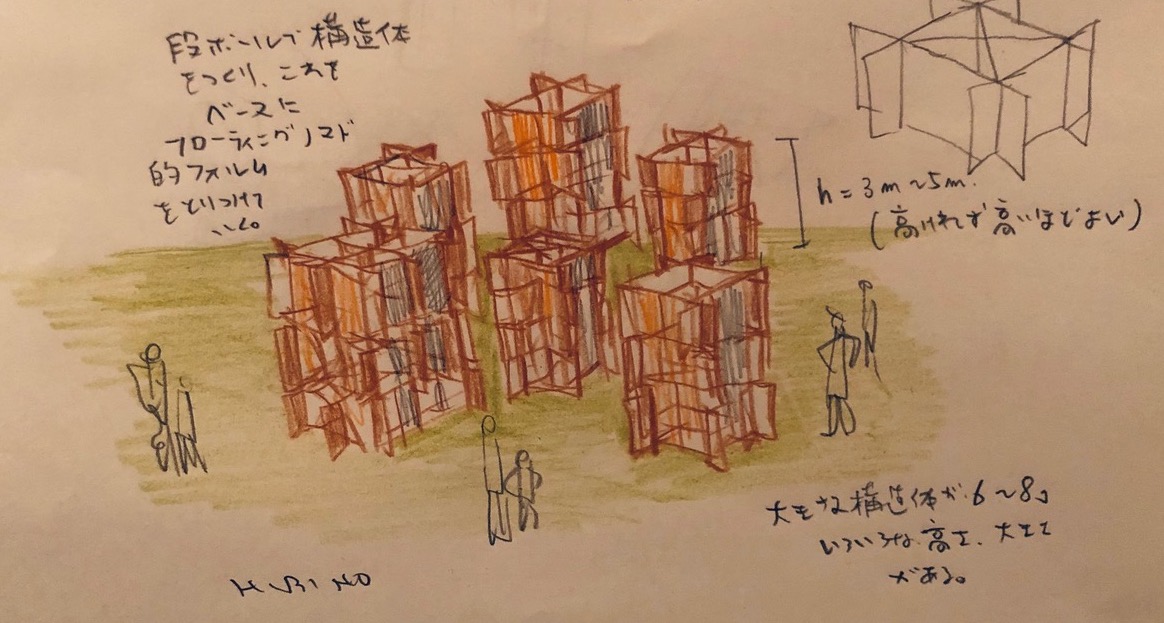 段ボールで構造体
をつくり、これを
ベースに
フローティングノマド
的フォルム
をとりつけて
いく。
h=3m~5m.
(高ければ高いほどよい)
大きな構造体が6~8コ
いろいろな高さ、大きさ
がある。